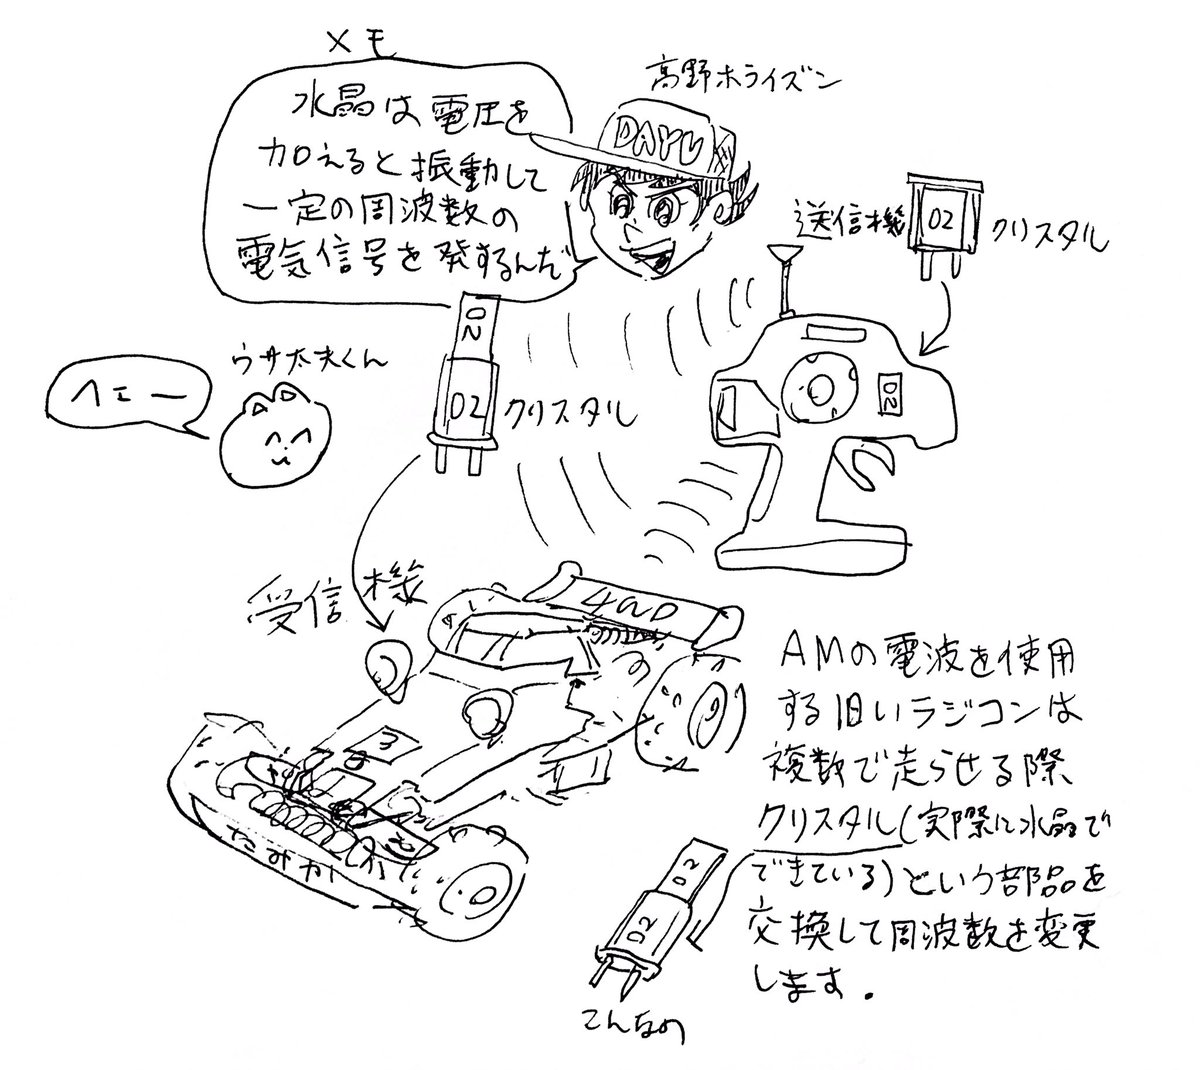 メモ
水晶は電圧を
加えると振動して
一定の周波数の
電気信号を発するんだ
高野ホライズン
DAYU
送信機
02
クリスタル
ウサ太夫くん
ヘェー
02
02
クリスタル
02
受信機
4WD
3
たみか
AMの電波を使用
する旧いラジコンは
複数で走らせる際
クリスタル(実際に水晶で
できている)という部品を
交換して周波数を変更
します.
02
02
こんなの